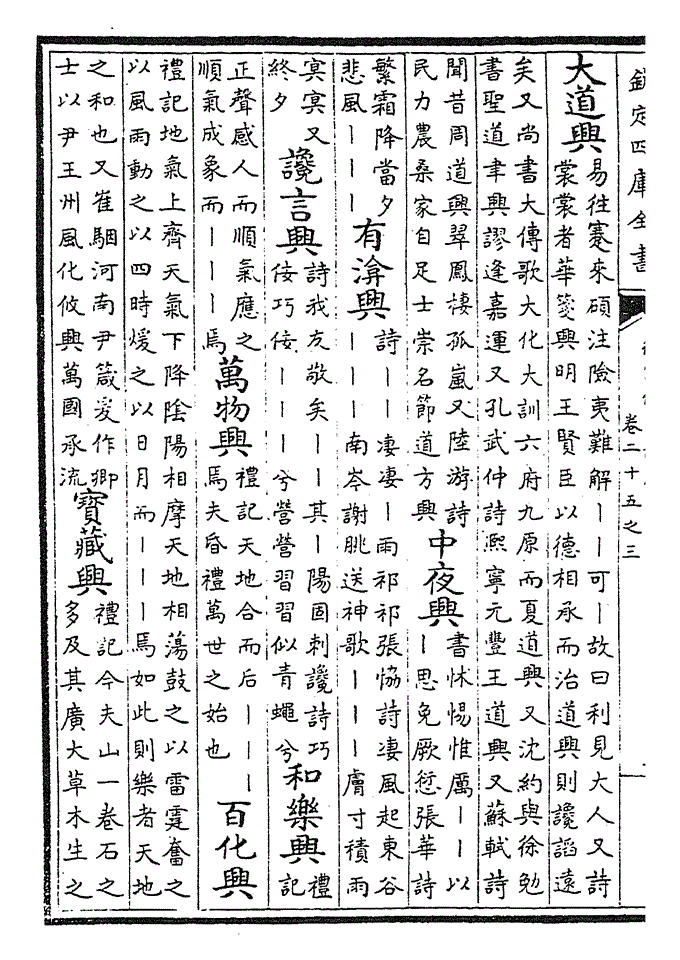 欽定四庫全書
卷二十五之三
大道興
易往蹇來碩注險夷難解丨丨可丨故曰利見大人又詩
裳裳者華箋興明王賢臣以德相承而治道興則讒謟遠
矣又尚書大傳歌大化大訓六府九原而夏道興又沈約與徐勉
書聖道聿興謬逢嘉運又孔武仲詩熙寧元豐王道興又蘇軾詩
聞昔周道興翠鳳棲孤嵐又陸游詩
民力農桑家自足士崇名節道方興
中夜興
書怵惕惟厲丨丨以
丨思免厥愆張華詩
繁霜降當夕
悲風丨丨丨
有渰興
詩丨丨凄凄丨雨祁祁張協詩凄風起東谷
丨丨丨南岑謝朓送神歌丨丨丨膚寸積雨
㝠㝠又
終夕
讒言興
詩我友敬矣丨丨其丨陽固刺讒詩巧
佞巧佞丨丨丨兮營營習習似青蠅兮
和樂興
禮
記
正聲感人而順氣應之
順氣成象而丨丨丨焉
萬物興
禮記天地合而后丨丨丨
焉夫昏禮萬世之始也
百化興
禮記地氣上齊天氣下降陰陽相摩天地相蕩鼓之以雷霆奮之
以風雨動之以四時煖之以日月而丨丨丨焉如此則樂者天地
之和也又崔駰河南尹箴爰作卿
士以尹王州風化攸興萬國承流
寶藏興
禮記今夫山一卷石之
多及其廣大草木生之